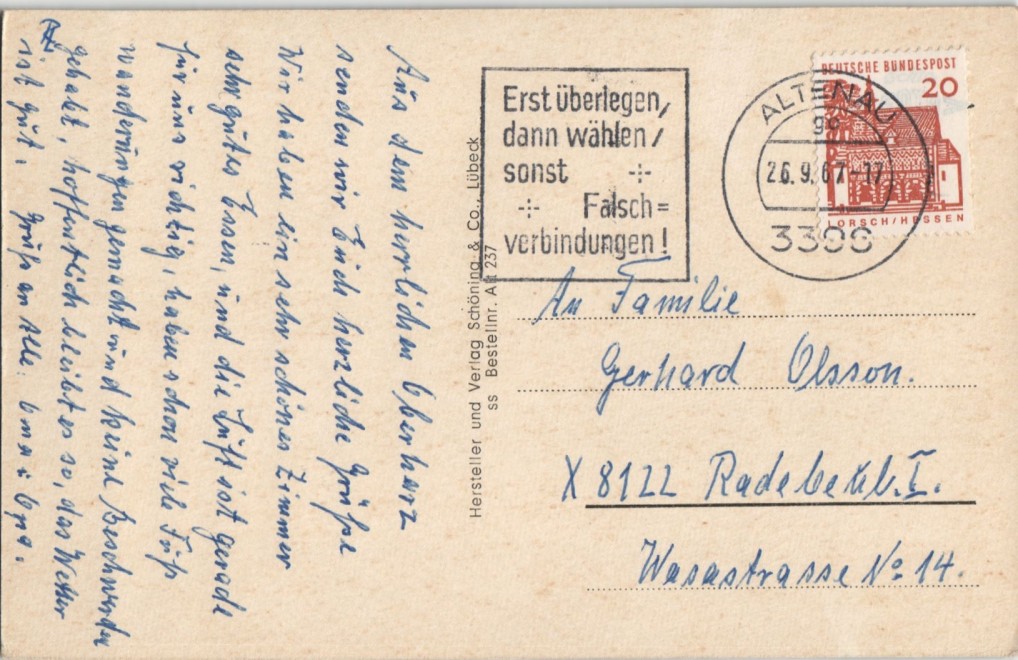 Aus dem herrlichen Oberharz
senden wir Euch herzliche Grüße
Wir haben ein sehr schönes Zimmer
sehr gutes Essen, und die Luft ist gerade
für uns richtig, haben schon viele Fuß
wanderungen gemacht und keine Beschwerden
gehabt, hoffentlich bleibt es so, das Wetter
ist gut. Gruß an Alle. Oma u Opa.
Hersteller und Verlag Schöning & Co., Lübeck
ss Bestellnr. Alt 237
Erst überlegen,
dann wählen,
sonst
Falsch=
verbindungen!
ALTENAU
26.9.67-17
3396
DEUTSCHE BUNDESPOST
20
LORSCH/HESSEN
An Familie
Gerhard Olsson.
X 8122 Radebeul. I.
Wasastrasse No 14.